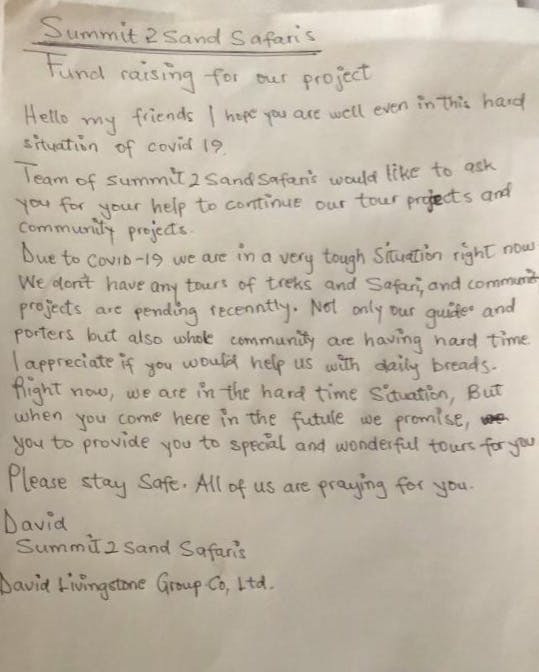 Summit 2 Sand Safaris
Fund raising for our project
Hello my friends I hope you are well even in this hard
situation of covid 19.
Team of summit 2 Sand Safaris would like to ask
you for your help to continue our tour projects and
community projects.
Due to COVID-19 we are in a very tough Situation right now
We don't have any tours of treks and Safari, and communit
projects are pending recenntly. Not only our guides and
porters but also whole community are having hard time
I appreciate if you would help us with daily breads.
Right now, we are in the hard time Situation, But
when you come here in the future we promise, we
you to provide you to special and wonderful tours for you
Please stay Safe. All of us are praying for you.
David
Summit 2 Sand Safaris
David Livingstone Group Co, Ltd.